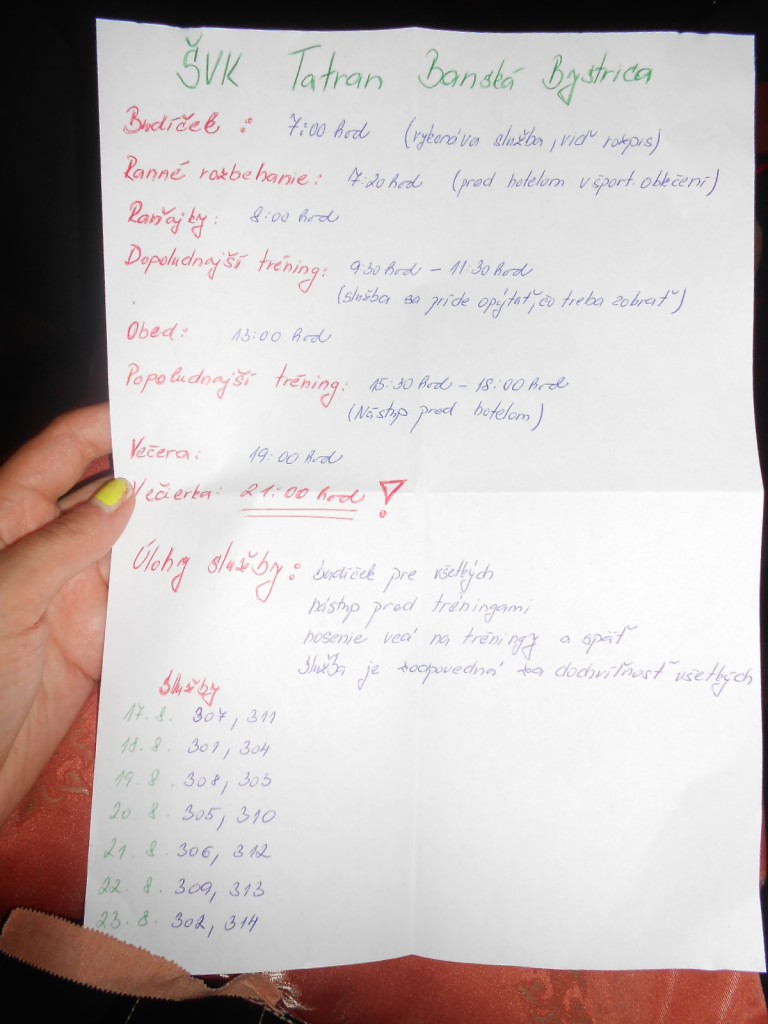 ŠVK Tatran Banská Bystrica
Budíček: 7:00 hod (vykonáva služba, viď rozpis)
Ranné rozbehanie: 7:20 hod (pred hotelom v šport. oblečení)
Raňajky: 8:00 hod
Dopoludnajší tréning: 9:30 hod - 11:30 hod
(služba sa príde opýtať, čo treba zobrať)
Obed: 13:00 hod
Popoludnajší tréning: 15:30 hod - 18:00 hod
(Nástup pred hotelom)
Večera: 19:00 hod
Večierka: 21:00 hod !
Úlohy služby: budíček pre všetkých
nástup pred tréningami
nosenie vecí na tréningy a späť
služba je zodpovedná za dochvíľnosť všetkých
Služby
17. 8. 307, 311
18. 8. 301, 304
19. 8. 308, 303
20. 8. 305, 310
21. 8. 306, 312
22. 8. 309, 313
23. 8. 302, 314